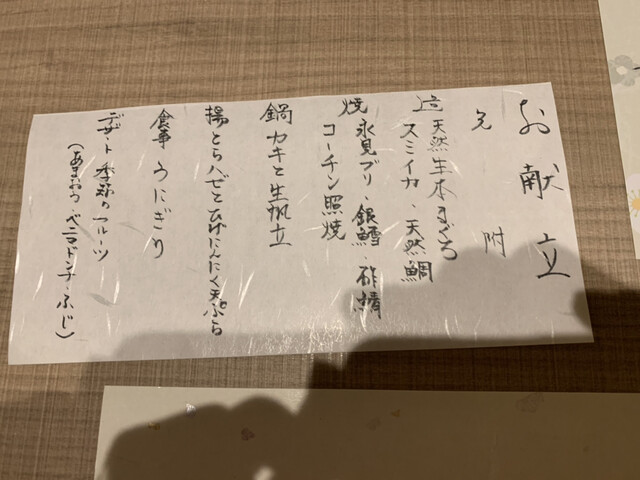 お献立
先附
造 天然生本まぐろ
スミイカ、天然鯛
焼 氷見ブリ、銀鱈、酢鯖
コーチン照焼
鍋 カキと生帆立
揚 とらハゼとひげにんにく天ぷら
食事 うにぎり
デザート 季節のフルーツ
(あまおう・べにマドンナ・ふじ)